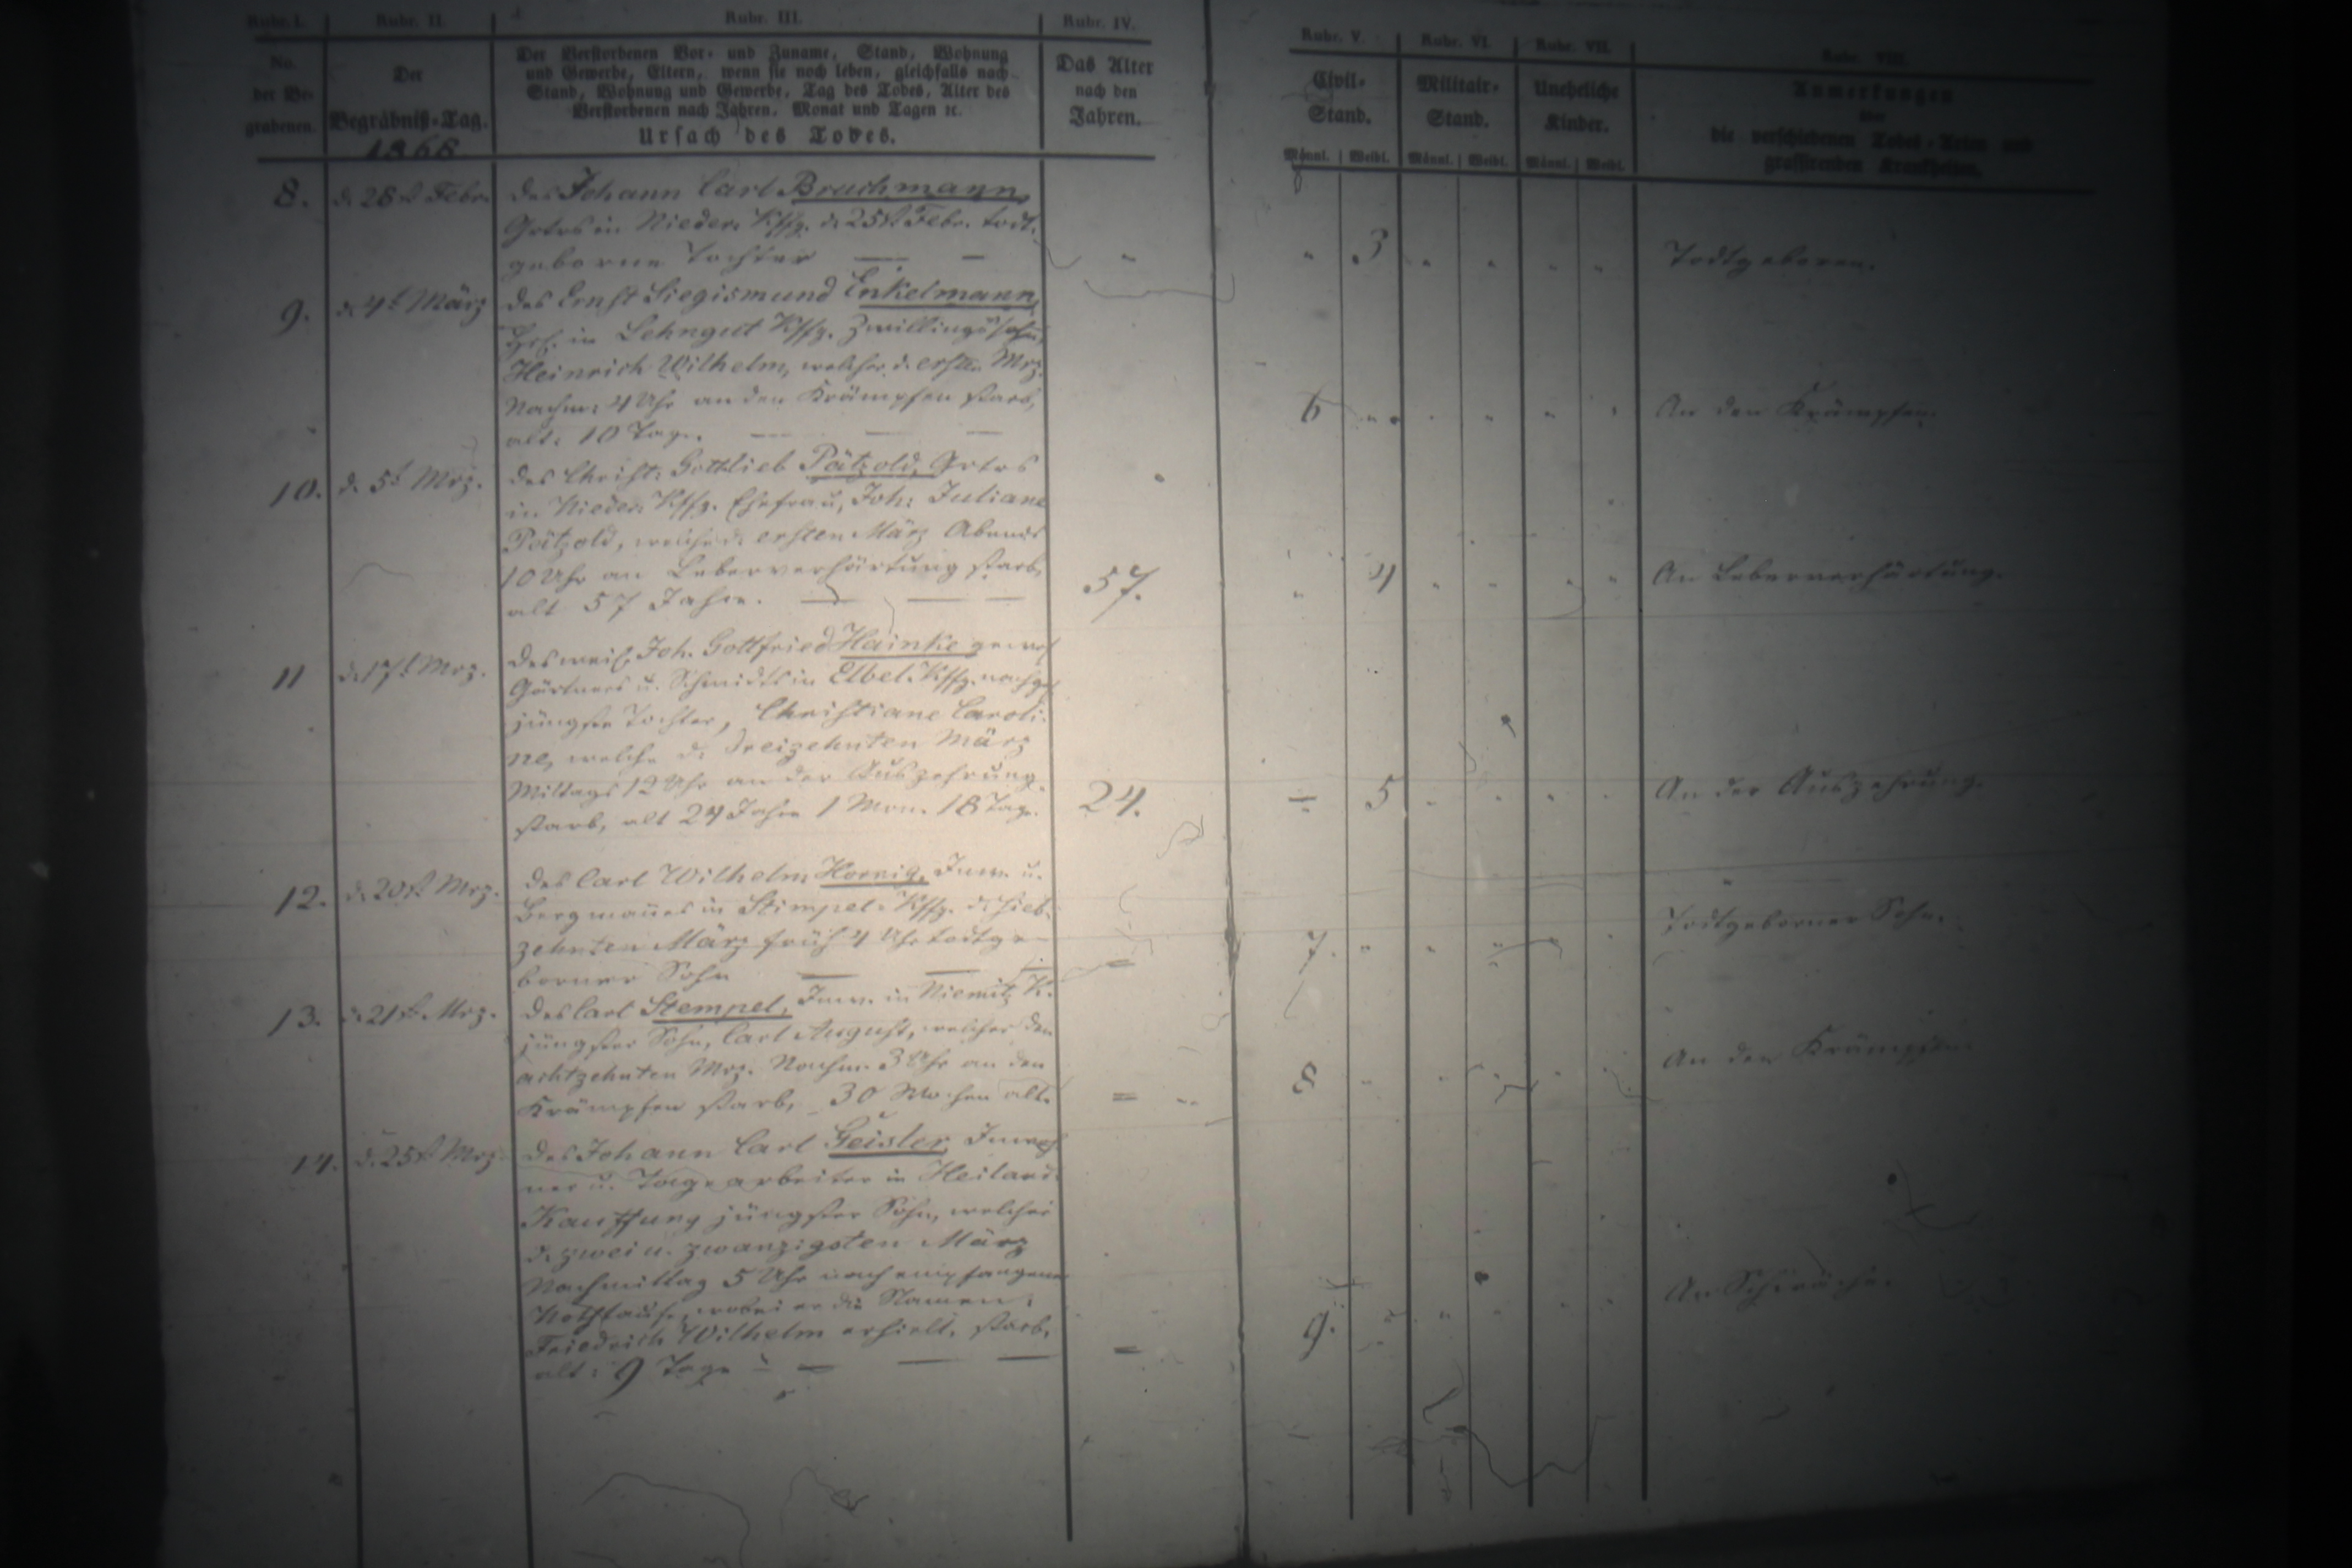 Rubr. I. Rubr. II. Rubr. III. Rubr. IV. Rubr. V. Rubr. VI. Rubr. VII. Rubr. VIII.
No. der Be- grabenen.
Der Begräbniß-Tag.
1868
Der Verstorbenen Vor- und Zuname, Stand, Wohnung
und Gewerbe, Eltern, wenn sie noch leben, gleichfalls nach
Stand, Wohnung und Gewerbe, Tag des Todes, Alter des
Verstorbenen nach Jahren, Monat und Tagen ꝛc.
Ursach des Todes.
Das Alter
nach den
Jahren.
Civil-
Stand.
Männl. Weibl.
Militair-
Stand.
Männl. Weibl.
Uneheliche
Kinder.
Männl. Weibl.
Anmerkungen
über
die verschiedenen Todes-Arten und
grassirenden Krankheiten.
8. d. 28st Febr. des Johann Carl Bruchmann,
Grtrs in Nieder: Kffg. d. 25st Febr. todt-
geborne Tochter — — " " 3 " " " " Todtgeboren.
9. d. 4t März des Ernst Siegismund Enkelmann,
in Lehngut Kffg. Zwillingssohn,
Heinrich Wilhelm, welcher d. ersten Mrz.
Nachm: 4 Uhr an den Krämpfen starb,
alt: 10 Tage. — — — 6 " " " " " An den Krämpfen.
10. d. 5t Mrz. des Christ: Gottlieb Pätzold, Grtrs
in Nieder: Kffg. Ehefrau, Joh: Juliane
Pätzold, welche d. ersten März Abends
10 Uhr an Leberverhärtung starb,
alt 57 Jahre. — — — 57. " 4 " " " " An Leberverhärtung.
11 d. 17t Mrz. des weil. Joh. Gottfried Hainke gewes.
Gärtners u. Schmidts in Elbel. Kffg. nachgel.
jüngste Tochter, Christiane Caroli-
ne, welche d. dreizehnten März
Mittags 12 Uhr an der Auszehrung
starb, alt 24 Jahre 1 Mon. 18 Tage. 24. — 5 " " " " An der Auszehrung.
12. d. 20st Mrz. des Carl Wilhelm Hornig, Inw. u.
Bergmannes in Stimpel: Kffg. d. sieb-
zehnten März früh 4 Uhr todtge-
borner Sohn — — — 7. " " " " " Todtgeborner Sohn.
13. d. 21st Mrz. des Carl Stempel, Inw. in Niemitz K.
jüngster Sohn, Carl August, welcher den
achtzehnten Mrz. Nachm. 3 Uhr an den
Krämpfen starb, 30 Wochen alt. = 8 " " " " " An den Krämpfen.
14. d. 25st Mrz. des Johann Carl Geisler, Inwoh-
ner u. Tagearbeiter in Heiland-
Kauffung jüngster Sohn, welcher
d. zwei u. zwanzigsten März
Nachmittag 5 Uhr nach empfangener
Nothtaufe, wobei er die Namen:
Friedrich Wilhelm erhielt, starb,
alt: 9 Tage — — — = 9. " " " " " An Schwäche.